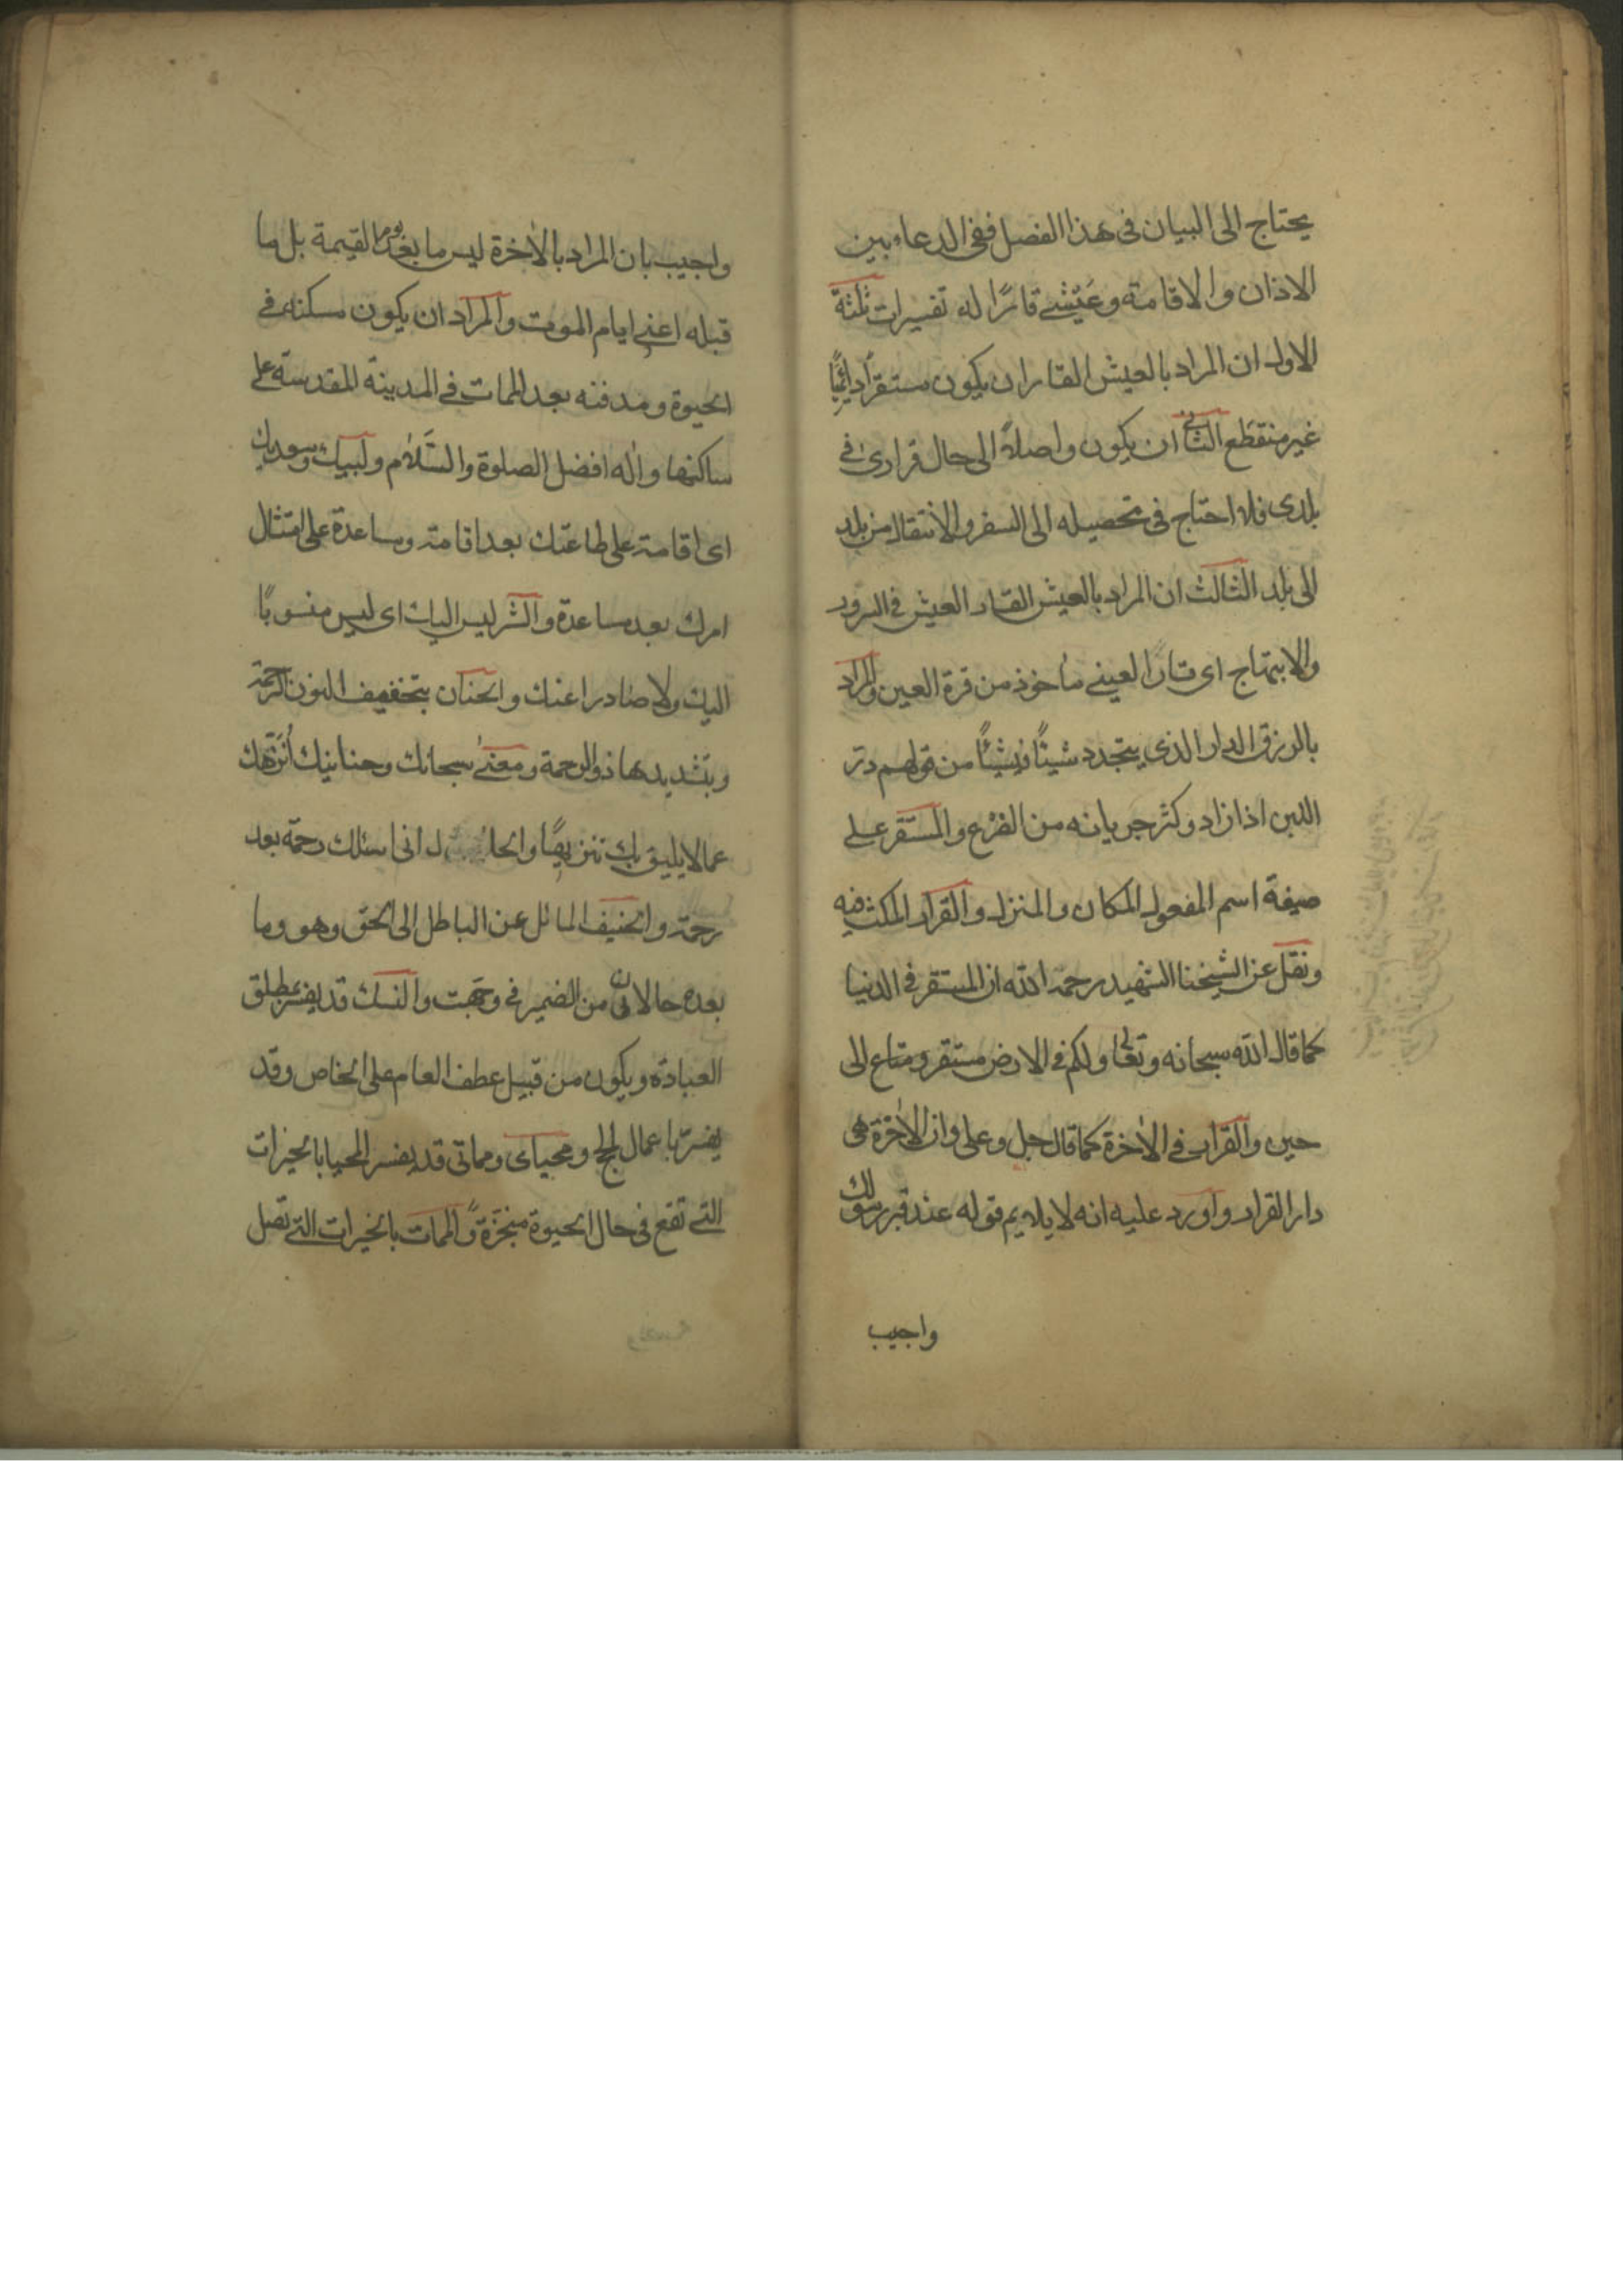 يحتاج الى البيان فى هذا الفصل ففى الدعاء بين
الاذان والاقامة وعَيْشى قارًا له تفسيرات ثلثة
الاول ان المراد بالعيش القار ان يكون مستقرًا دائمًا
غير منقطع الثانى ان يكون واصلًا الى حال قرارى فى
بلدى فلا احتاج فى تحصيله الى السفر والانتقال من بلد
الى بلد الثالث ان المراد بالعيش القار العيش فى السرور
والابتهاج اى قارًا لعينى مأخوذ من قرة العين والمراد
بالرزق الدار الذى يتجدد شيئًا فشيئًا من قولهم در
اللبن اذا زاد وكثر جريانه من الضرع والمستقر على
صيغة اسم المفعول المكان والمنزل والقرار المكث فيه
ونقل عن الشيخنا الشهيد رحمه الله ان المستقر فى الدنيا
كما قال الله سبحانه وتعالى ولكم فى الارض مستقر ومتاع الى
حين والقرار فى الاٰخرة كما قال جل وعلى وان الاٰخرة هى
دار القرار واورد عليه انه لا يلايم قوله عند قبر رسولك
واجيب
واجيب بان المراد بالاٰخرة ليس ما بعد يوم القيمة بل ما
قبله اعنى ايام الموت والمراد ان يكون مسكنه فى
الحيوة ومدفنه بعد الممات فى المدينة المقدسة على
ساكنها واٰله افضل الصلوة والسَّلام ولبيك وسعديك
اى اقامة على طاعتك بعد اقامة ومساعدة على امتثال
امرك بعد مساعدة والشر ليس اليك اى ليس منسوبًا
اليك ولا صادرا عنك والحنان بتخفيف النون الرحمة
وبتشديدها ذو الرحمة ومعنى سبحانك وحنانيك اُنَزِّهك
عما لا يليق بك تنزيهًا والحال انى اسئلك رحمة بعد
رحمة والحنيف المائل عن الباطل الى الحق وهو وما
بعده حالان من الضمير فى وجَّهت والنسك قد يفسر بمطلق
العبادة ويكون من قبيل عطف العام على الخاص وقد
يفسر باعمال الحج ومحياى ومماتى قد يفسر المحيا بالخيرات
التى تقع فى حال الحيوة منجَزة والممات بالخيرات التى تصل